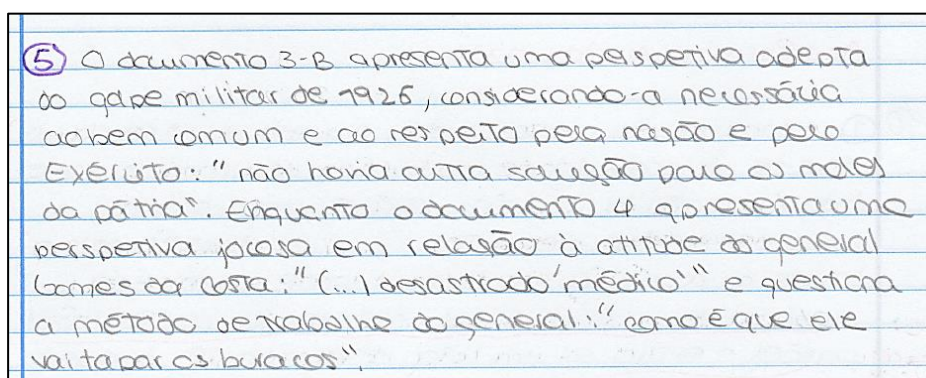 5 O documento 3-B apresenta uma perspetiva adepta
ao golpe militar de 1926, considerando-a necessária
ao bem comum e ao respeito pela nação e pelo
Exército: "não havia outra solução para os males
da pátria". Enquanto o documento 4 apresenta uma
perspetiva jocosa em relação à atitude do general
Gomes da Costa: "(...) desastrado 'médico'" e questiona
o método de trabalho do general: "como é que ele
vai tapar os buracos".